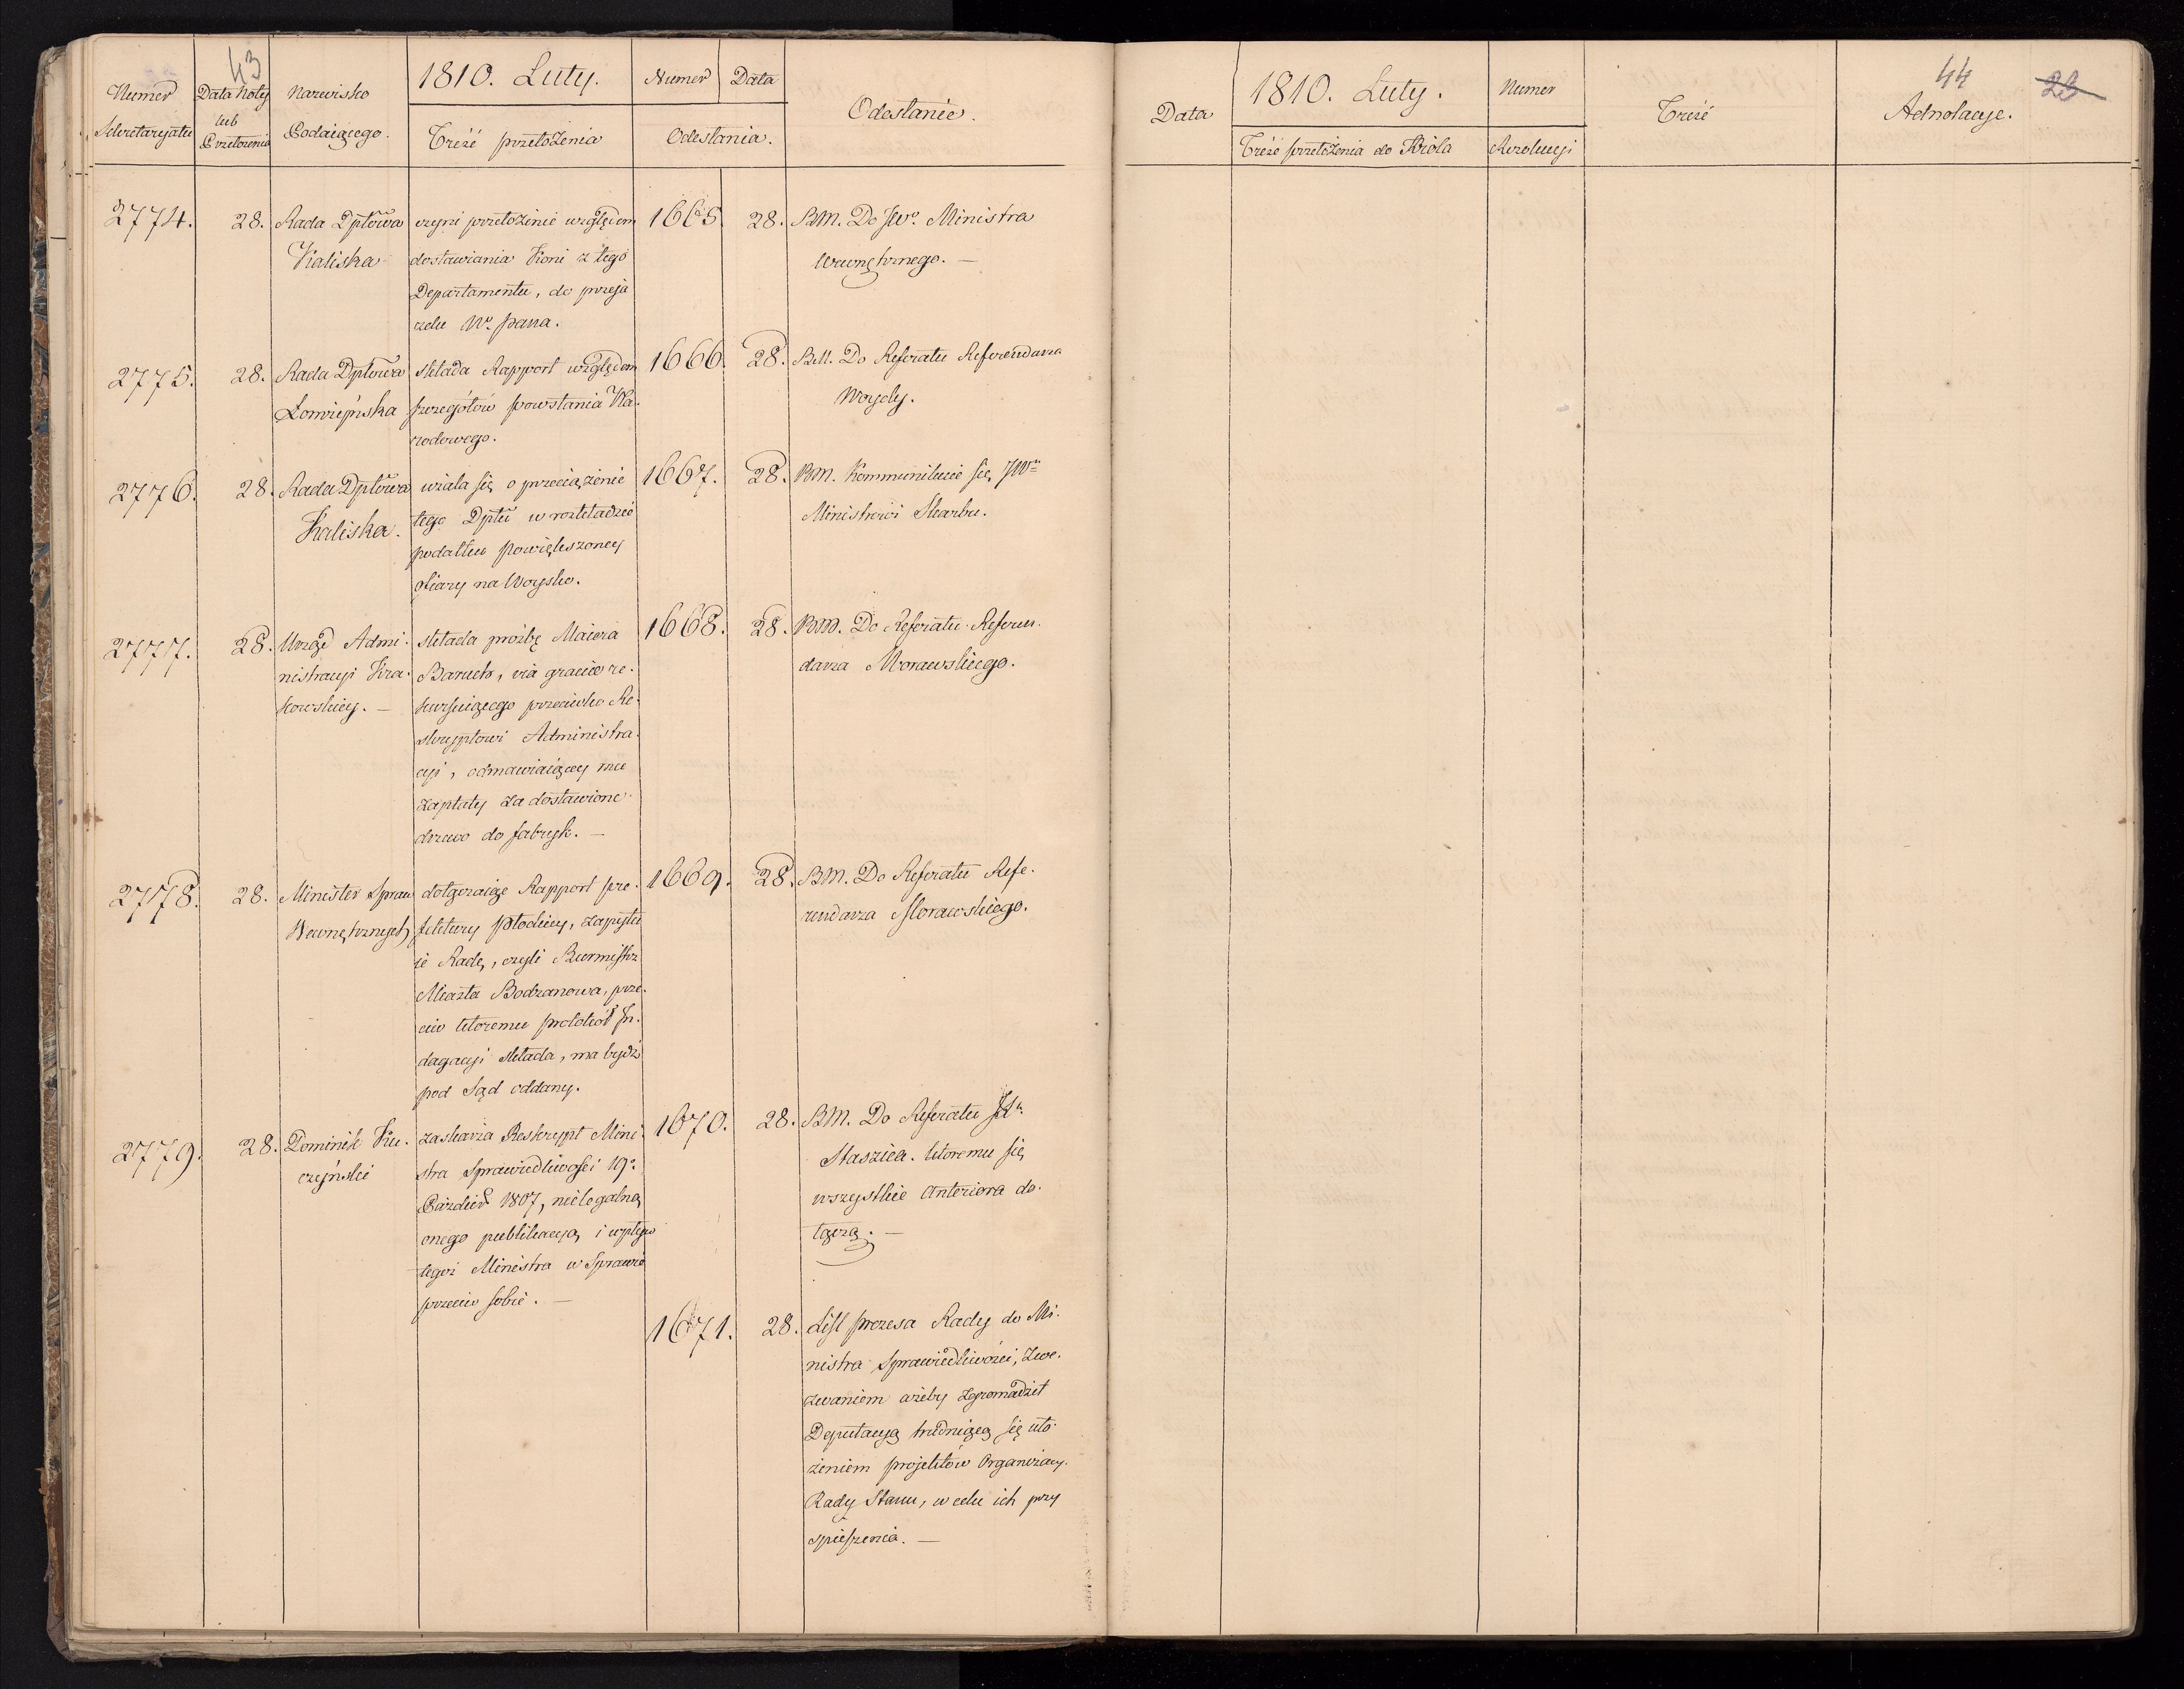 43
Numer
Sekretaryatu
Data Noty
lub
Przełożenia
Nazwisko
Podaiącego.
1810. Luty.
Treść przełożenia
Numer Data
Odesłania.
Odesłanie.
2774. 28. Rada Dptowa
Kaliska
czyni przełożenie względem
dostawiania Koni z tego
Departamentu, do przeja
zdu No. pana.
1665. 28. BM. Do JWo. Ministra
Wewnętrznego. —
2775. 28. Rada Dptowa
Łomżyńska
składa Rapport względem
szczegółów powstania Na.
rodowego.
1666. 28. BM. Do Referatu Referendarza
Woydy.
2776. 28. Rada Dptowa
Kaliska.
użala się o przeciążenie
tego Dptu w rozkładzie
podatku powiększoney
ofiary na Woysko.
1667. 28. BM. Kommunikuie się JWu
Ministrowi Skarbu.
2777. 28. Urząd Admi.
nistracyi Kra.
kowskiey. —
składa prozbę Maiera
Baruch, via graciae re.
kursuiącego przeciwko Re.
skryptowi Administra.
cyi, odmawiaiącey mu
zapłaty za dostawione
drzewo do fabryk. —
1668. 28. BM. Do Referatu Referen.
darza Morawskiego.
2778. 28. Minister Spraw
Wewnętrznych
dołączaiąc Rapport pre.
fektury Płockiey, zapytu
ie Radę, czyli Burmistrz
Miasta Bodzanowa, prze.
ciw ktoremu protokół In.
dagacyi składa, ma bydź
pod Sąd oddany.
1669. 28. BM. Do Referatu Refe.
rendarza Morawskiego.
2779. 28. Dominik Ku.
czyński
zaskarża Reskrypt Mini.
stra Sprawiedliwości 19o.
Paździer 1807, nielegalną
onego publikacyą i wpływ
tegoż Ministra w Sprawie
przeciw sobie. —
1670. 28. BM. Do Referatu
Staszica. ktoremu się
wszystkie Anteriora do.
łączą. —
1671. 28. List prezesa Rady do Mi.
nistra Sprawiedliwości, z we.
zwaniem ażeby zgromadził
Deputacyą trudniącą się uło.
żeniem projektów Organizacy.
Rady Stanu, w celu ich przy
spieszenia. —
44
23
Data
1810. Luty.
Treść przełożenia do Króla
Numer
Rezolucyi
Treść
Adnotacye.